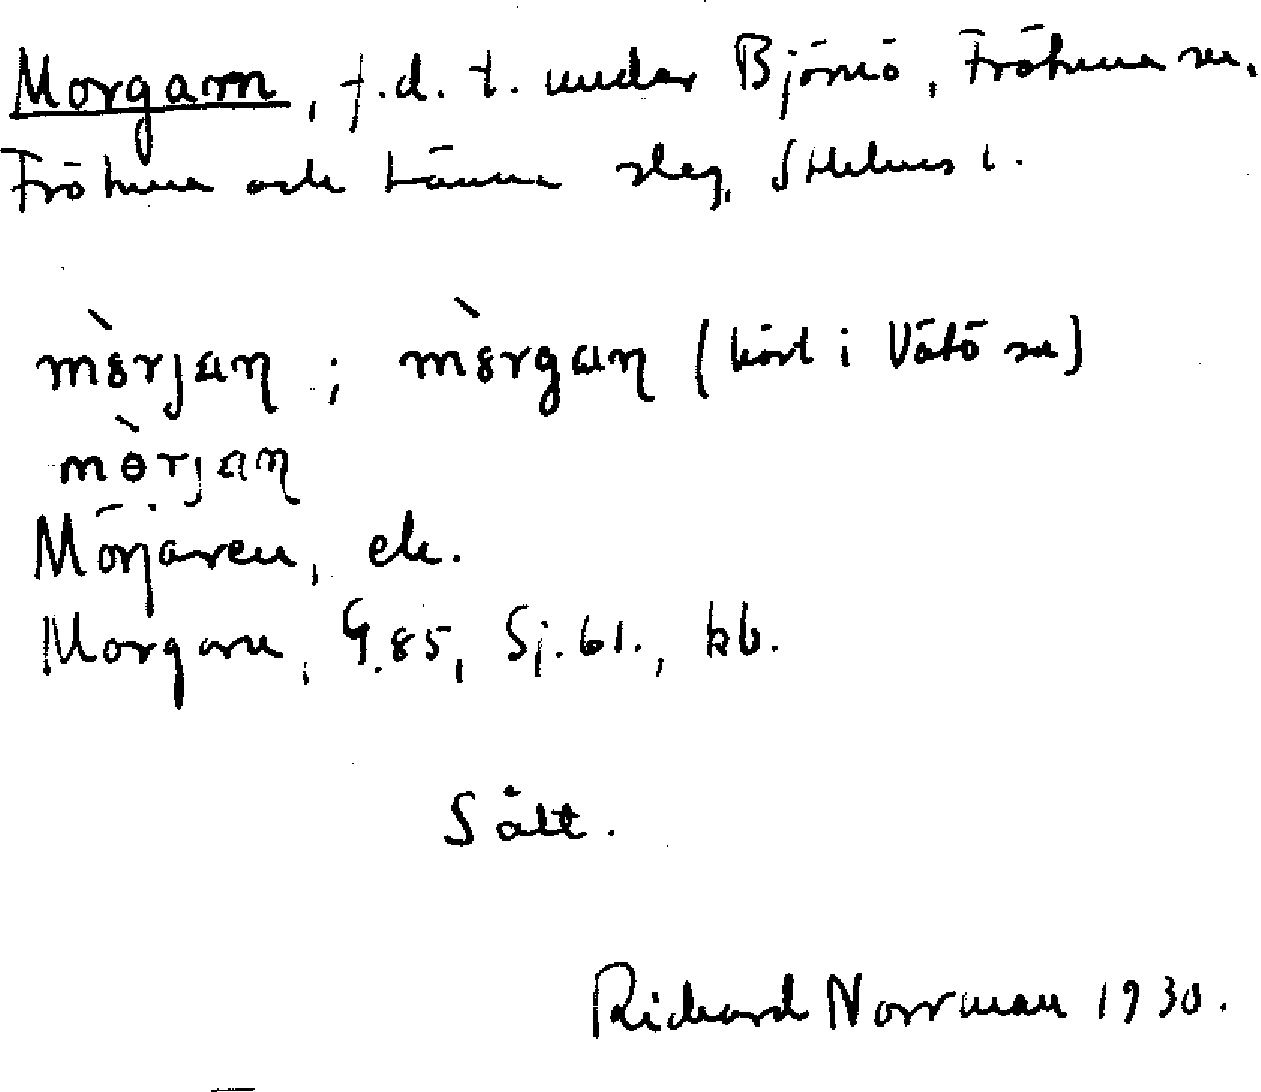 Morgarn, f.d. t. under Björnö, Frötuna sn.
Frötuna och Länna slg, Sthlms l.
mòrjaṇ ; mòrgaṇ (hört i Vätö sn)
mòrjaṇ
Mörjaren, ek.
Morgarn, G.85, Sj.61., kb.
Sält.
Richard Norrman 1930.